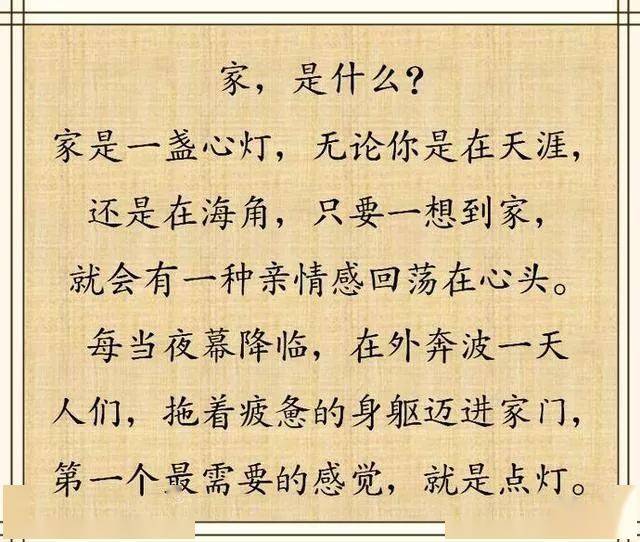 家，是什么？
家是一盏心灯，无论你是在天涯，
还是在海角，只要一想到家，
就会有一种亲情感回荡在心头。
每当夜幕降临，在外奔波一天
人们，拖着疲惫的身躯迈进家门，
第一个最需要的感觉，就是点灯。